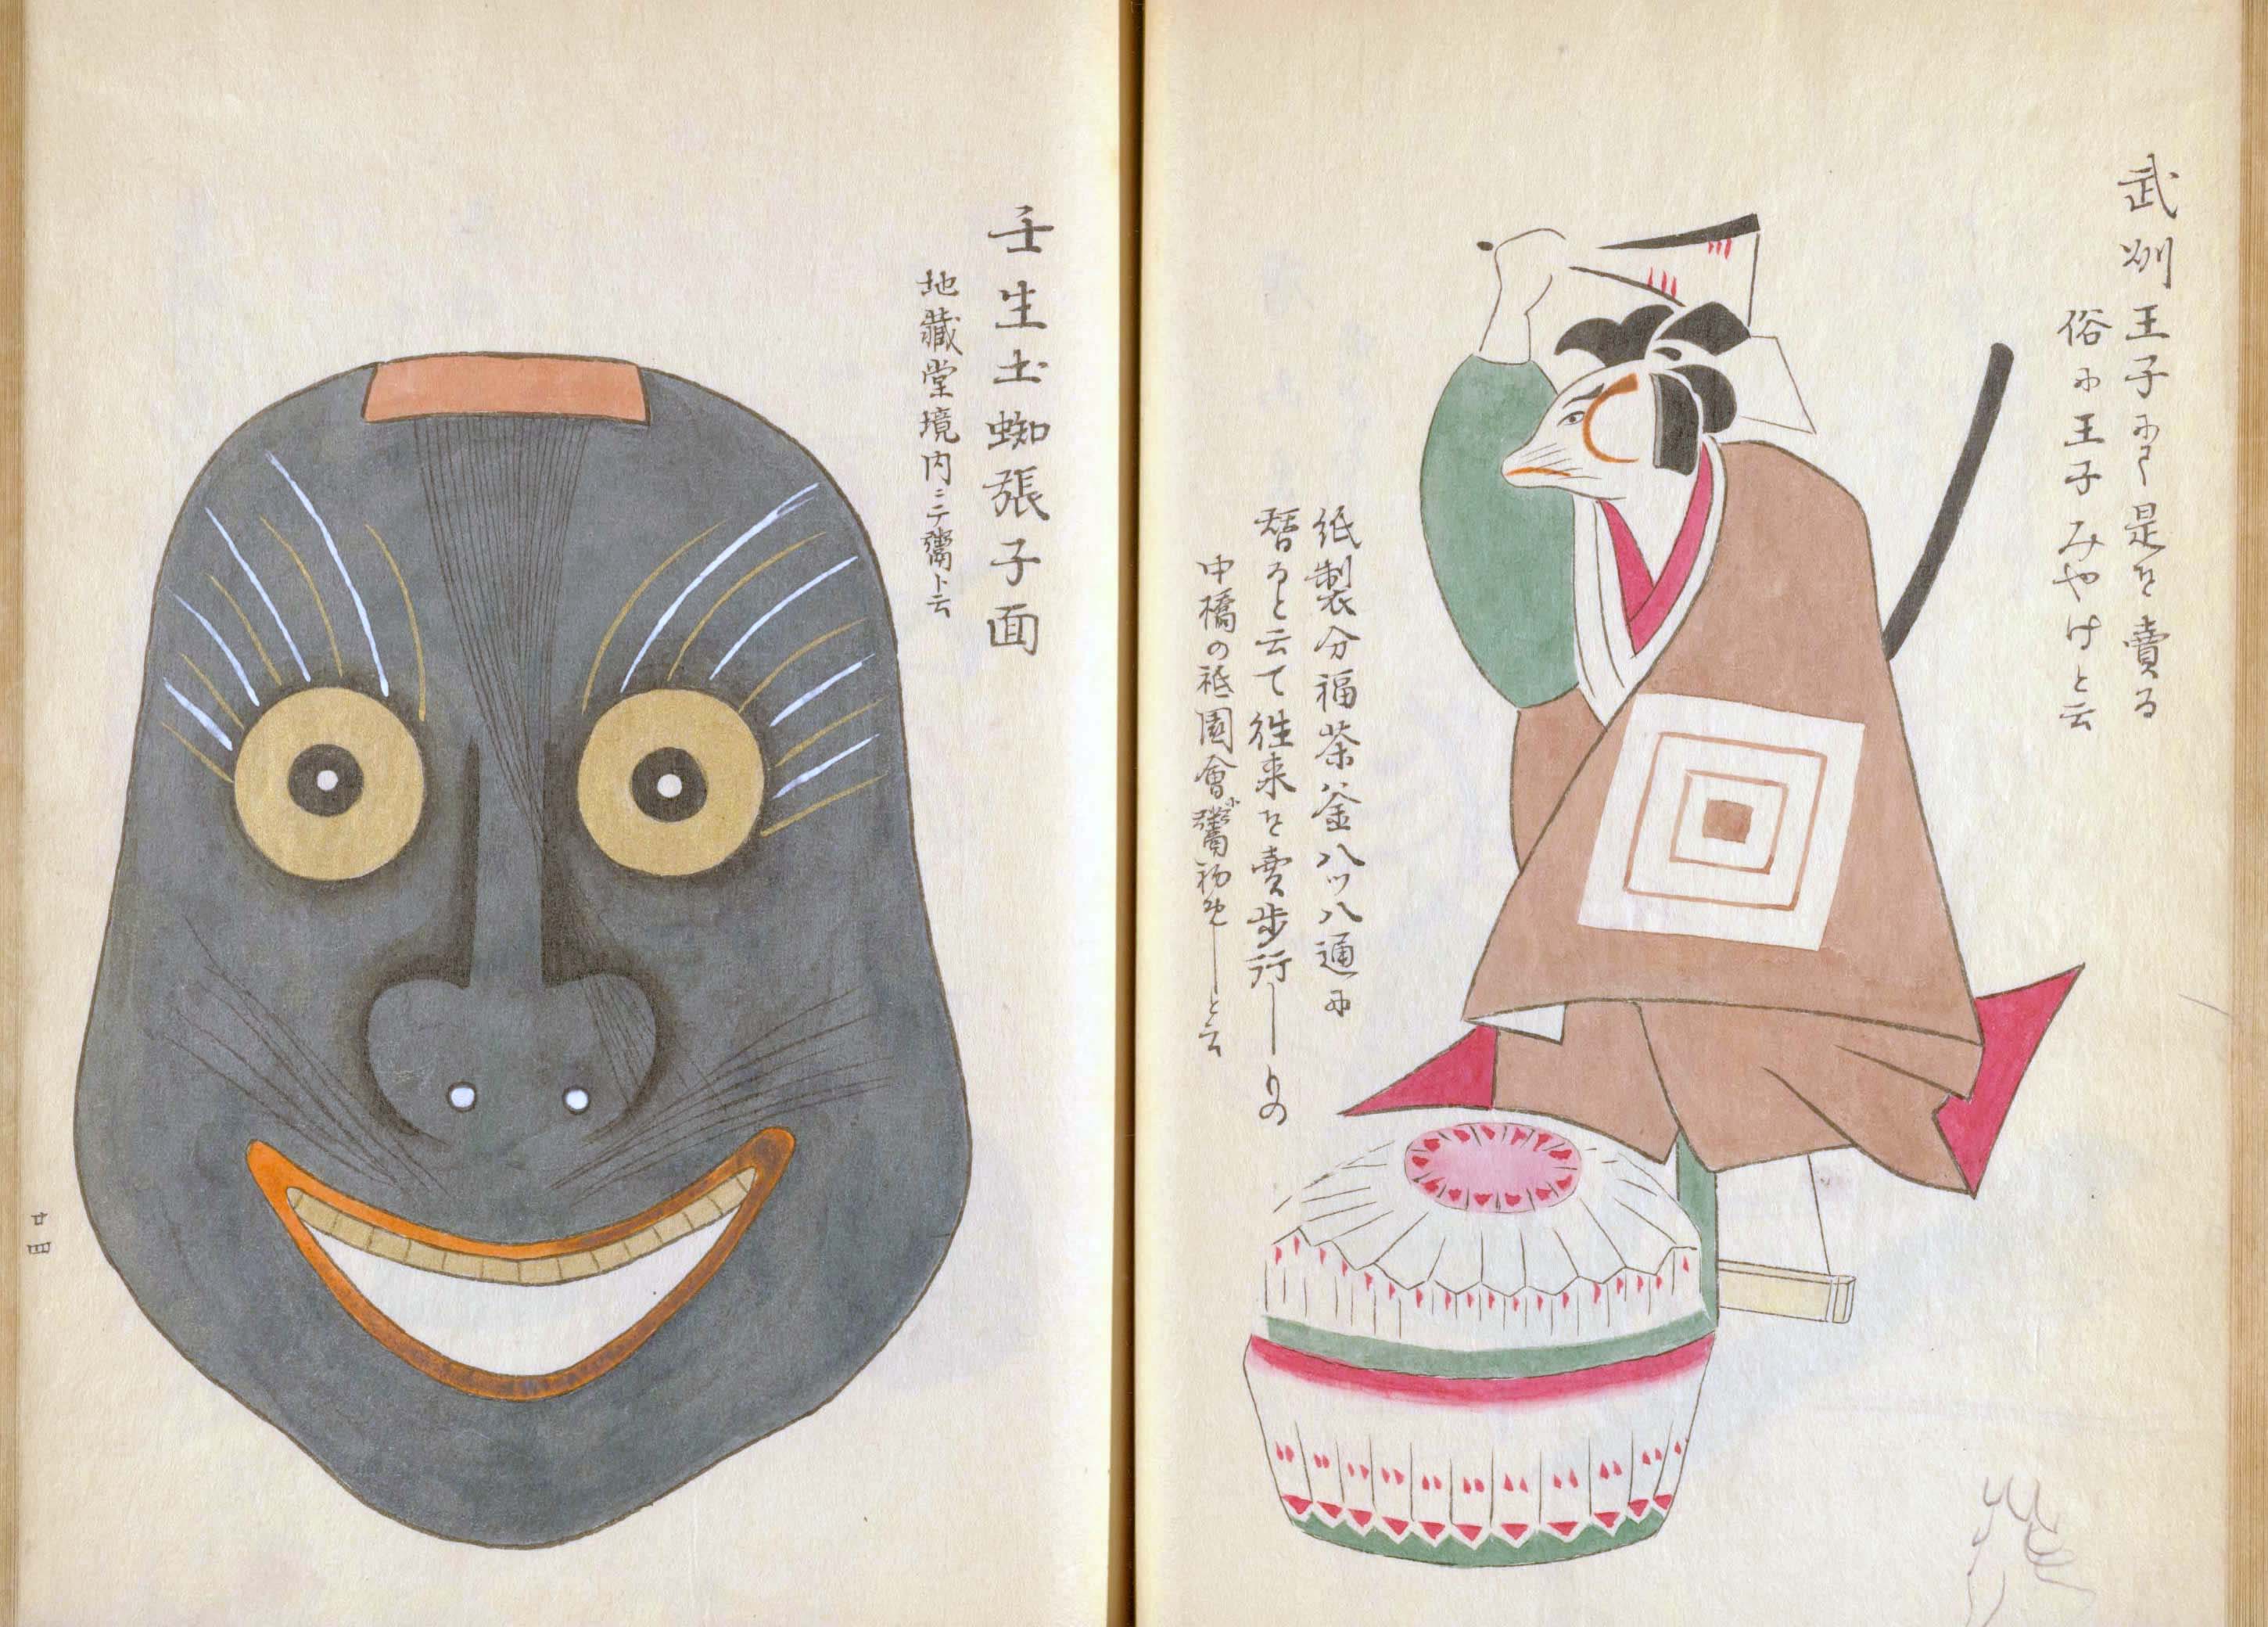 武州王子にて是を賣る
俗に王子みやけと云
紙製分福茶釜八ツ八通に
替ると云て往来を賣歩行しもの
中橋の祇園會に鬻初
しと云
壬生土蜘張子面
地藏堂境内ニテ鬻ト云
廿四